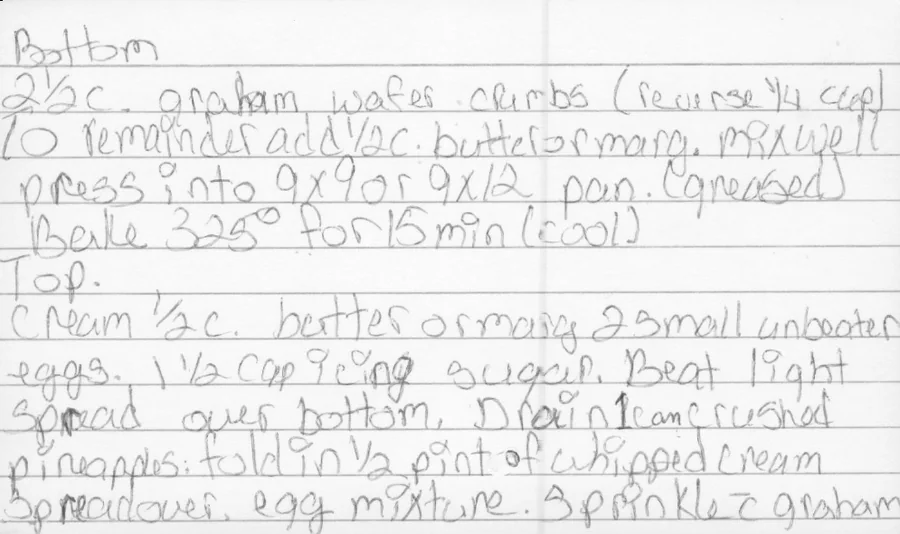 Bottom
2 1/2 c. graham wafer crumbs (reverse 1/4 cup)
To remainder add 1/2 c. butter or marg. mix well
press into 9x9 or 9x12 pan. (greased)
Bake 325° for 15 min (cool)
Top.
Cream 1/2 c. butter or marg 2 small unbeaten
eggs. 1 1/2 cup icing sugar. Beat light
spread over bottom. Drain 1 can crushed
pineapples: fold in 1/2 pint of whipped cream
Spread over egg mixture. Sprinkle c̄ graham